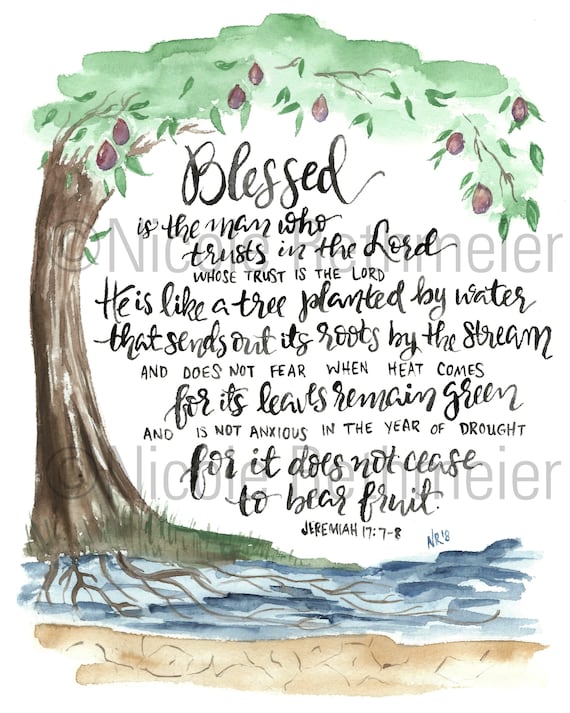 Blessed
is the man who
trusts in the Lord
WHOSE TRUST IS THE LORD
He is like a tree planted by water
that sends out its roots by the stream
AND DOES NOT FEAR WHEN HEAT COMES
for its leaves remain green
AND IS NOT ANXIOUS IN THE YEAR OF DROUGHT
for it does not cease
to bear fruit.
JEREMIAH 17:7-8
NR'18
©Nicole Rethmeier
©Nicole Rethmeier